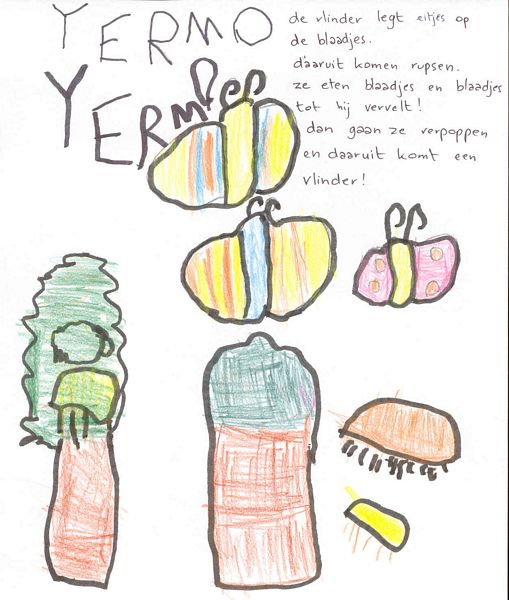 YERMO
YERMO
de vlinder legt eitjes op
de blaadjes.
daaruit komen rupsen.
ze eten blaadjes en blaadjes
tot hij vervelt!
dan gaan ze verpoppen
en daaruit komt een
vlinder!